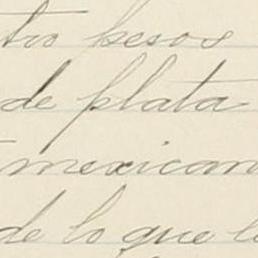 tro pesos
de plata
mexican
de lo que l